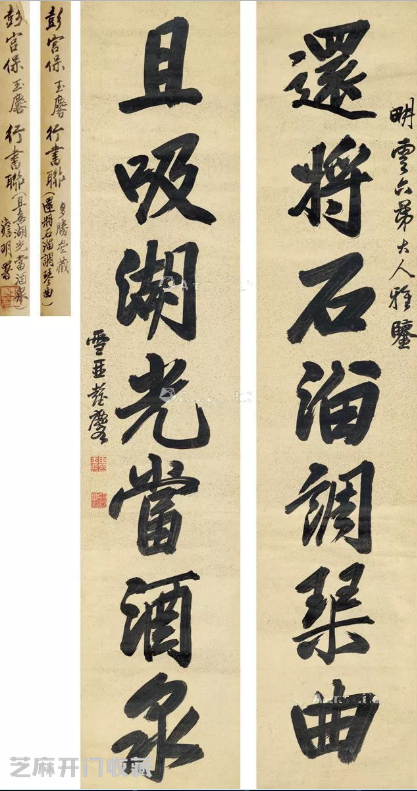 明雲六弟大人雅鑒
還將石溜調琴曲
且吸湖光當酒泉
雪琴彭玉麐
彭宮保玉麐行書聯(還將石溜調琴曲)
彭宮保玉麐行書聯(且吸湖光當酒泉)
芝麻开门收藏